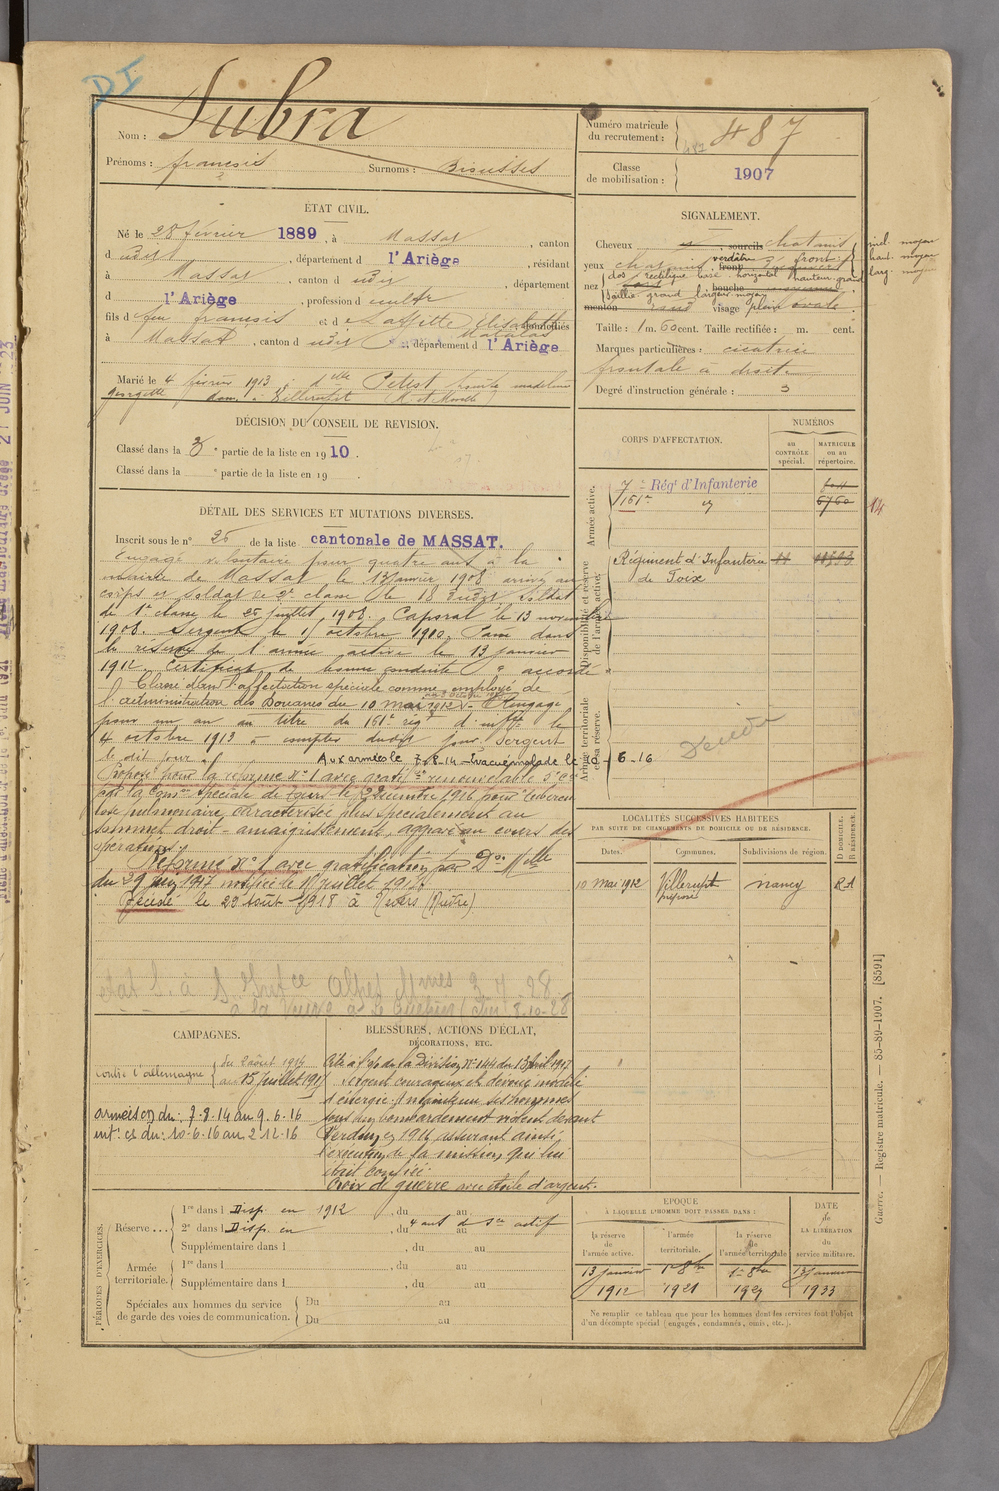 DI
Nom : Subra
Prénoms : françois Surnoms :
Numéro matricule du recrutement : 487
Classe de mobilisation : 1907
ÉTAT CIVIL.
Né le 28 février 1889, à Massat, canton
dudit, département d l'Ariège, résidant
à Massat, canton dudit, département
d l'Ariège, profession d cultr
fils d feu françois et d Laffitte Elisabeth domiciliés
à Massat, canton dudit, département d l'Ariège
Marié le 4 février 1913 à dlle Petest
georgette dom. à Villerupt (M. et Moselle)
DÉCISION DU CONSEIL DE REVISION.
Classé dans la 3e partie de la liste en 1910.
Classé dans la e partie de la liste en 19 .
DÉTAIL DES SERVICES ET MUTATIONS DIVERSES.
Inscrit sous le n° 26 de la liste cantonale de MASSAT.
Engagé volontaire pour quatre ans à la
mairie de Massat le 13 janvier 1908 arrivé au
corps et soldat de 2e classe le 18 dudit. Soldat
de 1e classe le 25 juillet 1908. Caporal le 13 novembre
1908. Sergent le 1 octobre 1910. Passé dans
la réserve de l'armée active le 13 janvier
1912. Certificat de bonne conduite "accordé".
Classé dans l'affectation spéciale comme employé de
l'administration des Douanes du 10 mai 1912. Rengagé
pour un an au titre du 161e régt d'inffie le
4 octobre 1913 à compter dudit jour. Sergent
le dit jour. Aux armées le 7-8-14 - Evacué malade le 10-6-16
Proposé pour la réforme N° 1 avec gratifon renouvelable 5e ce
par la Comon spéciale de Tours le 2 Décembre 1916 pour tubercu
lose pulmonaire, caractérisée plus spécialement au
sommet droit - amaigrissement, apparu au cours des
opérations.
Réformé N° 1 avec gratification par Don Melle
du 29 juin 1917 notifiée le 15 juillet 1917
Décédé le 29 Août 1918 à Nevers (Nièvre)
SIGNALEMENT.
Cheveux sourcils chatains
yeux chatains verdâtre front
nez dos rectiligne base horizontal hauteur grand
saillie grand largeur moyen
incl. moyen
haut. moyen
larg. moyen
menton rond visage plein ovale
Taille : 1 m. 60 cent. Taille rectifiée : m. cent.
Marques particulières : cicatrice
frontale à droite
Degré d'instruction générale : 3
CORPS D'AFFECTATION.
NUMÉROS
au CONTRÔLE spécial.
MATRICULE ou au répertoire.
Armée active.
7e Régt d'Infanterie
161e 6760
Disponibilité et réserve de l'armée active.
Régiment d'Infanterie
de Foix
Armée territoriale et sa réserve.
Décédé
LOCALITÉS SUCCESSIVES HABITÉES
PAR SUITE DE CHANGEMENTS DE DOMICILE OU DE RÉSIDENCE.
Dates. Communes. Subdivisions de région. D DOMICILE. R RÉSIDENCE.
10 Mai 1912 Villerupt Nancy R A
préposé
CAMPAGNES.
Contre l'allemagne du 2 août 1914
au 15 Juillet 1917
armées du : 7-8-14 au 9-6-16
intr cs du : 10-6-16 au 2-12-16
BLESSURES, ACTIONS D'ÉCLAT,
DÉCORATIONS, ETC.
Cité à l'o/ de la Division N° 144 du 13 Avril 1917
Sergent courageux et dévoué modèle
d'énergie. A maintenu ses hommes
sous un bombardement violent devant
Verdun en 1916 assurant ainsi
l'exécution de la mission qui lui
était confiée
Croix de guerre avec étoile d'argent.
PÉRIODES D'EXERCICES.
Réserve...
1re dans l Disp. en 1912, du au
2e dans l Disp. en, du 4 ans de sce actif au
Supplémentaire dans l, du au
Armée territoriale.
1re dans l, du au
Supplémentaire dans l, du au
Spéciales aux hommes du service de garde des voies de communication.
Du au
Du au
ÉPOQUE
À LAQUELLE L'HOMME DOIT PASSER DANS :
la réserve de l'armée active.
l'armée territoriale.
la réserve de l'armée territoriale
DATE de LA LIBÉRATION du service militaire.
13 janvier 1912
1er 8bre 1921
1er 8bre 1927
13 janvier 1933
Ne remplir ce tableau que pour les hommes dont les services font l'objet
d'un décompte spécial (engagés, condamnés, omis, etc.).
Guerre. — Registre matricule. — 85-89-1907. [8591]